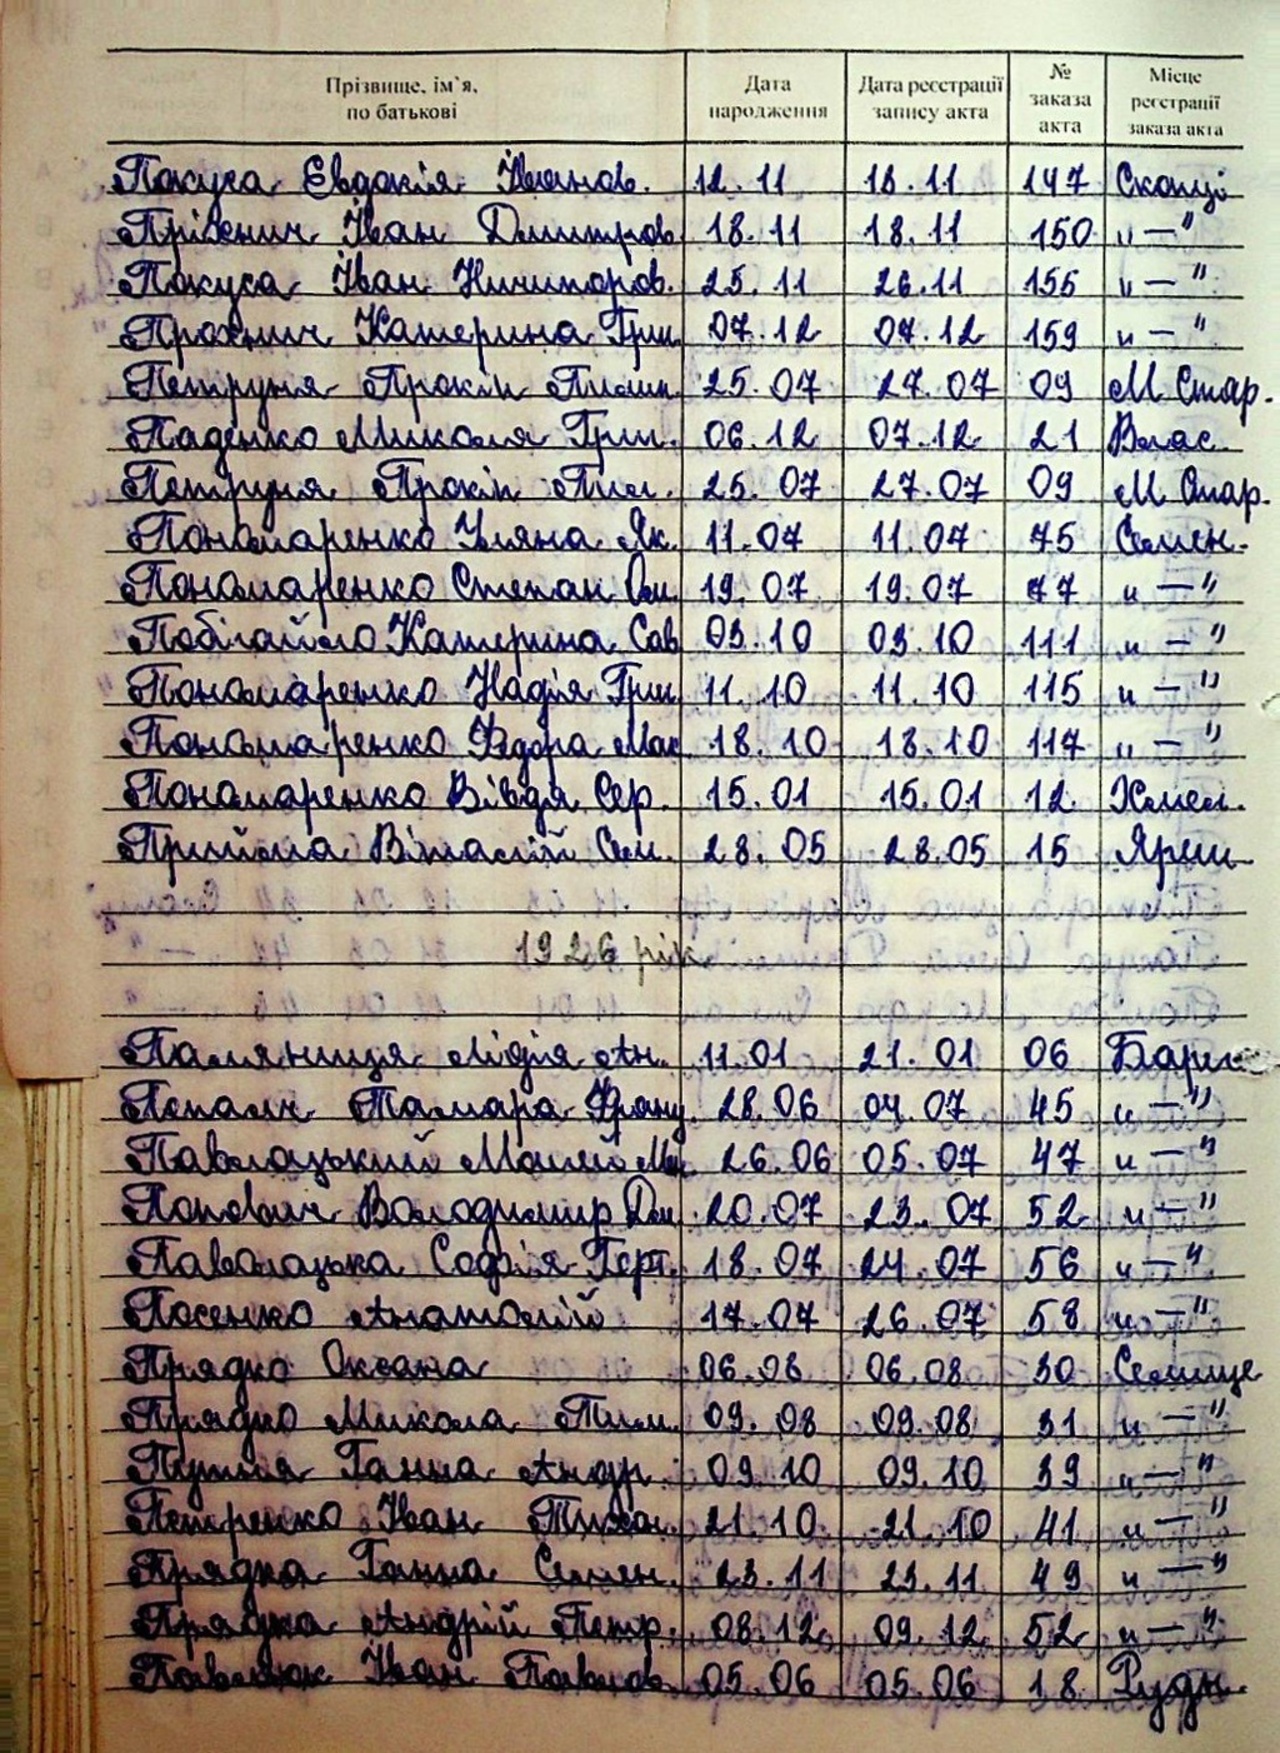 Прізвище, ім`я, по батькові Дата народження Дата реєстрації запису акта № заказа акта Місце реєстрації заказа акта
Покуса Евдокія Іванов. 12.11 13.11 147 Скопці
Іван Дмитров. 18.11 18.11 150 " — "
Покуса Іван Ничипоров. 25.11 26.11 155 " — "
Прохнич Катерина Гри. 07.12 07.12 159 " — "
Петруня Прокіп Тим. 25.07 27.07 09 М Стар.
Паденко Микола Гри. 06.12 07.12 21 Влас.
Петруня Прокіп Тим. 25.07 27.07 09 М Стар.
Пономаренко Уляна Як. 11.07 11.07 75 Семен.
Пономаренко Степан 19.07 19.07 77 " — "
Побігайло Катерина Сав 03.10 03.10 111 " — "
Пономаренко Надія Гри. 11.10 11.10 115 " — "
Пономаренко Мак 18.10 18.10 117 " — "
Пономаренко Вівдя Сер. 15.01 15.01 12 Хмел.
Прийма Віталій Сем. 28.05 28.05 15 Яреш
1926 рік
Паляниця Лідія Ан. 11.01 21.01 06 Бариш
Тамара Франц 28.06 04.07 45 " — "
Паволоцький 26.06 05.07 47 " — "
Попович Володимир Дм 20.07 23.07 52 " — "
Паволоцька Софія Герт. 18.07 24.07 56 " — "
Посенко Анатолій 17.07 26.07 58 " — "
Прядко Оксана 06.08 06.08 30 Селище
Прядко Микола Тим. 09.08 09.08 31 " — "
Ганна Андр. 09.10 09.10 39 " — "
Петренко Іван Тихон. 21.10 21.10 41 " — "
Прядка Ганна Семен. 23.11 23.11 49 " — "
Прядка Андрій Петр. 08.12 09.12 52 " — "
Павлюк Іван Павлов. 05.06 05.06 18 Рудн.